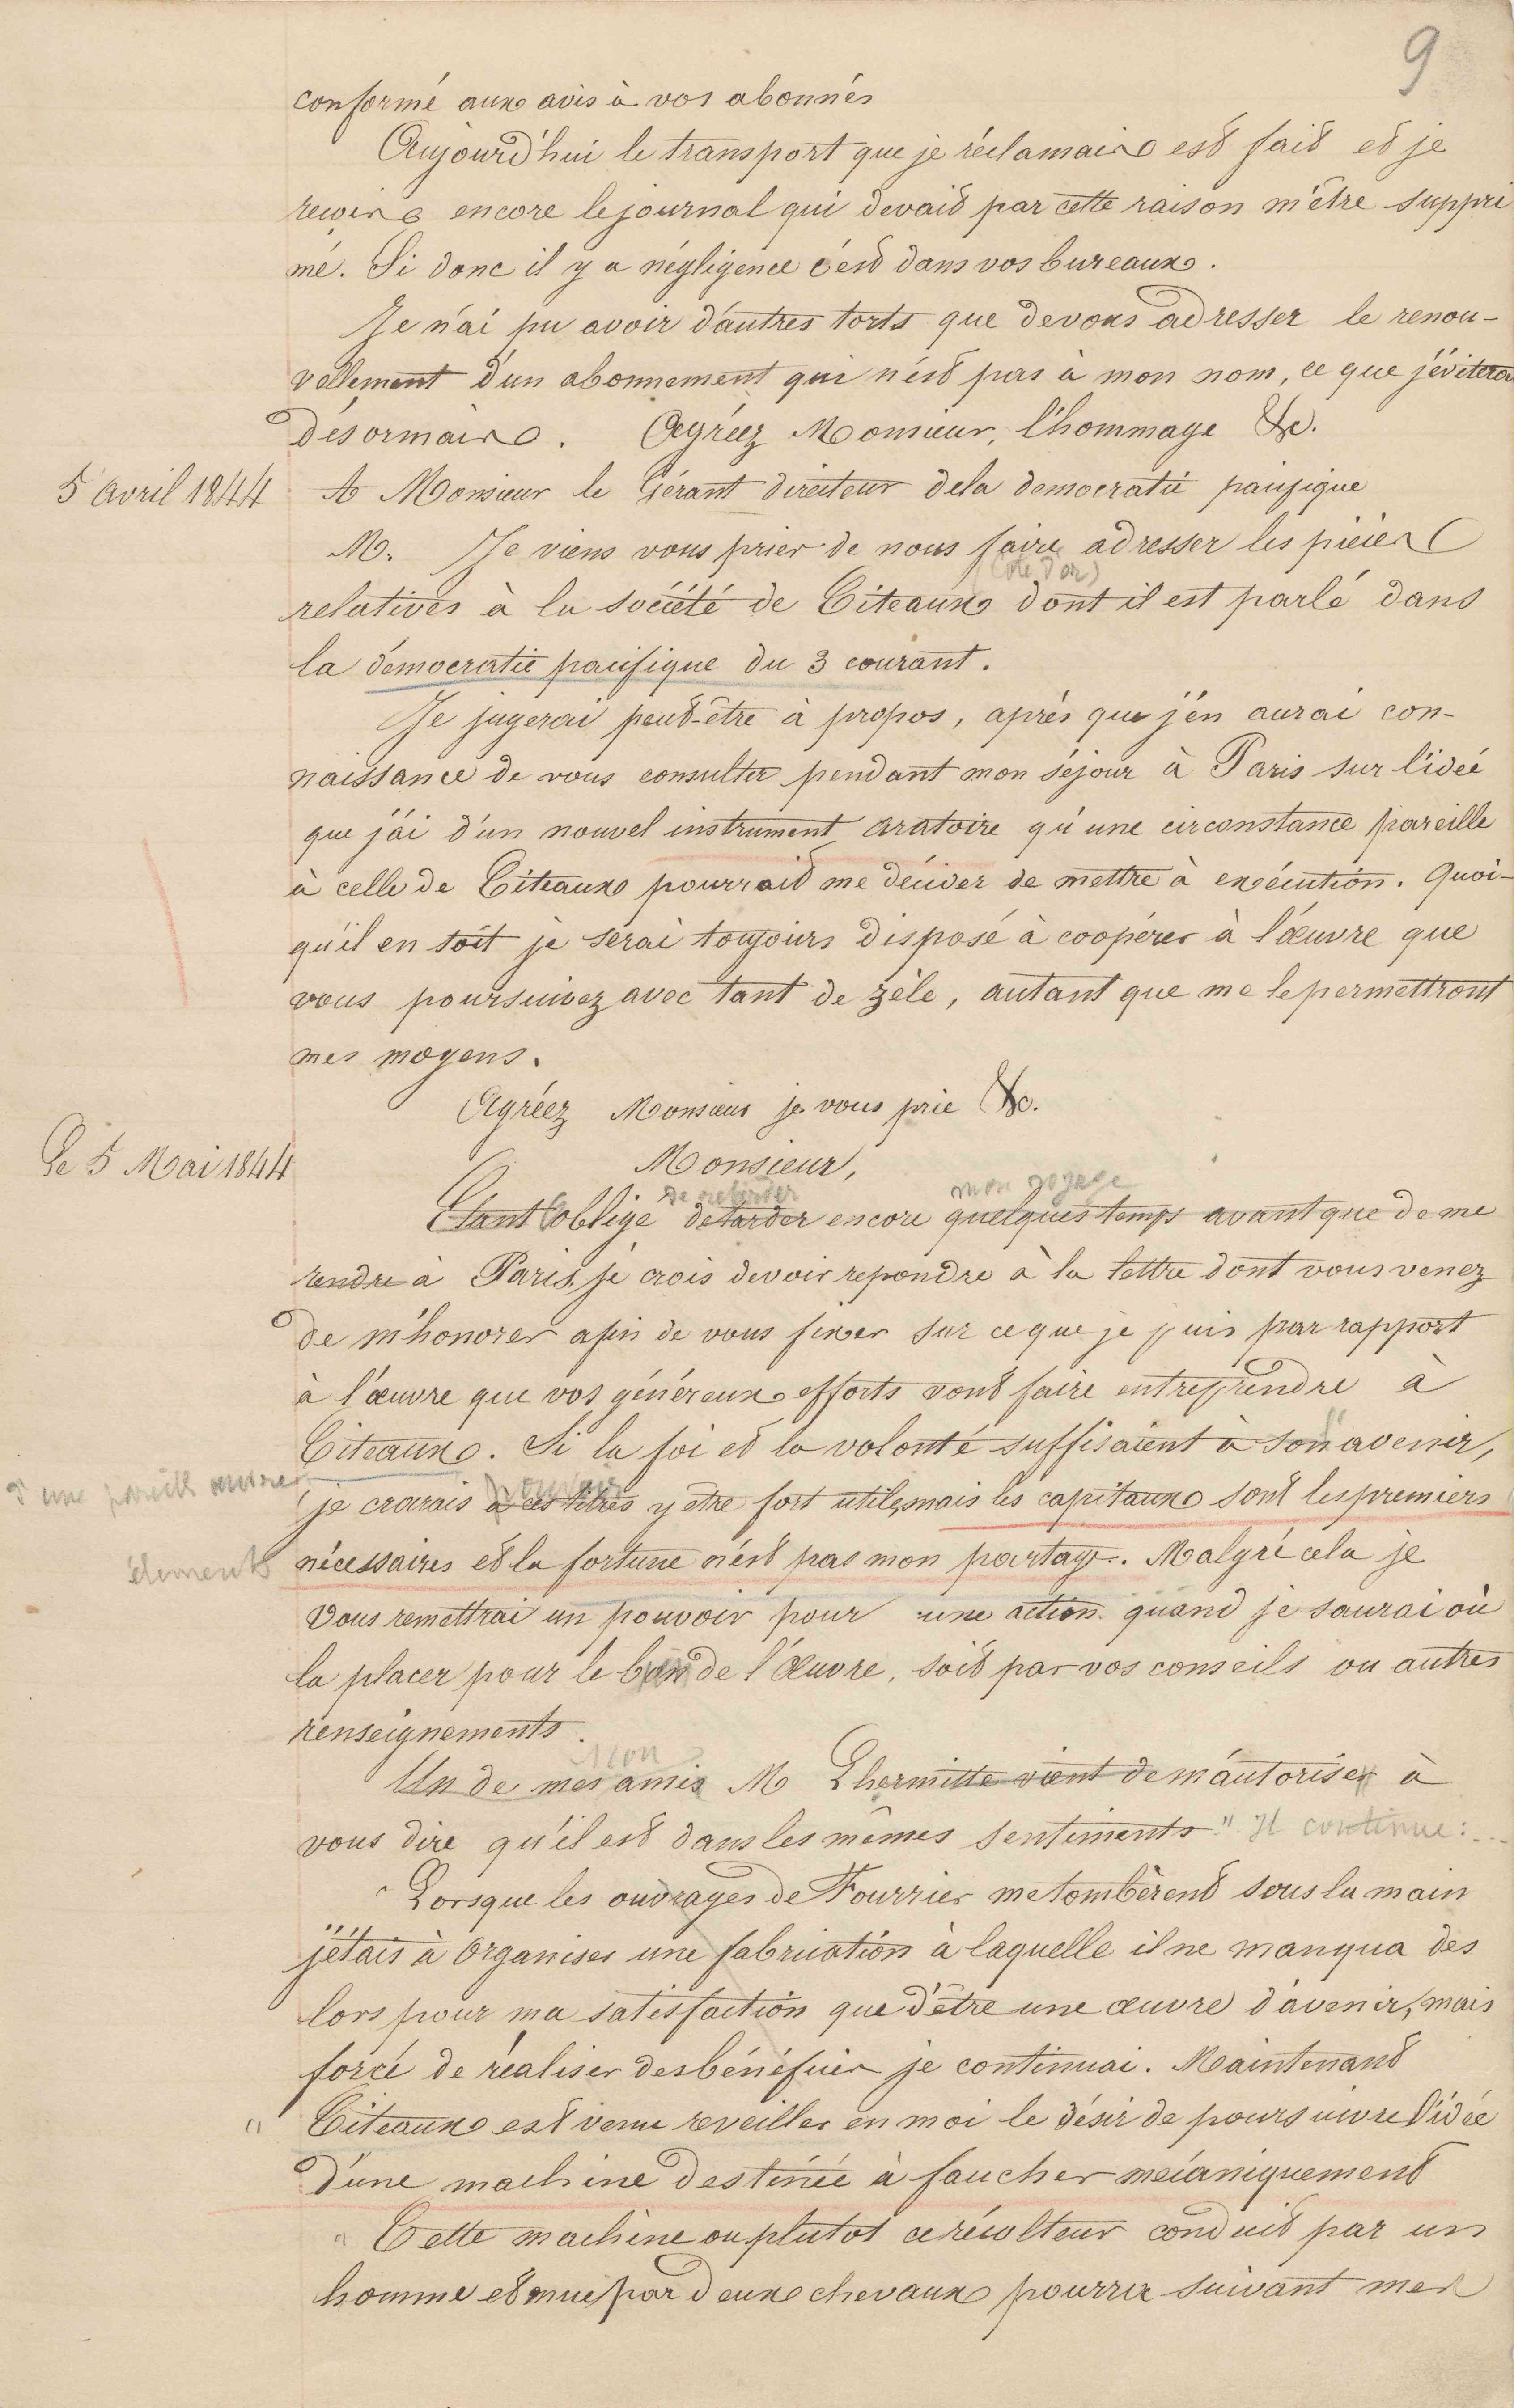 9
conformé aux avis à vos abonnés
Aujourd'hui le transport que je réclamais est fait et je
reçois encore le journal qui devait par cette raison m'être suppri
mé. Si donc il y a négligence c'est dans vos bureaux.
Je n'ai pu avoir d'autres torts que de vous adresser le renou-
vellement d'un abonnement qui n'est pas à mon nom, ce que j'éviterai
désormais. Agréez Monsieur, l'hommage &c.
5 Avril 1844 A Monsieur le Gérant directeur de la democratie pacifique
M. Je viens vous prier de nous faire adresser les pièces
(Côte d'or)
relatives à la société de Citeaux dont il est parlé dans
la démocratie pacifique du 3 courant.
Je jugerai peut-être à propos, après que j'en aurai con-
naissance de vous consulter pendant mon séjour à Paris sur l'idée
que j'ai d'un nouvel instrument aratoire qu'une circonstance pareille
à celle de Citeaux pourrait me décider de mettre à exécution. Quoi-
qu'il en soit je serai toujours disposé à coopérer à l'œuvre que
vous poursuivez avec tant de zèle, autant que me le permettront
mes moyens.
Agréez Monsieur je vous prie &c.
Le 5 Mai 1844 Monsieur,
de retarder mon voyage
Etant obligé de tarder encore quelques temps avant que de me
rendre à Paris, je crois devoir repondre à la lettre dont vous venez
de m'honorer afin de vous fixer sur ce que je puis par rapport
à l'œuvre que vos généreux efforts vont faire entreprendre à
Citeaux. Si la foi et la volonté suffisaient à son avenir,
d'une pareille œuvre pouvoir
je croirais à ces titres y etre fort utile, mais les capitaux sont les premiers
éléments nécessaires et la fortune n'est pas mon partage. Malgré cela je
vous remettrai un pouvoir pour une action quand je saurai où
la placer pour le bien de l'Œuvre, soit par vos conseils ou autres
renseignements.
Mon
Un de mes amis M Lhermitte vient de m'autoriser à
vous dire qu'il est dans les mêmes sentiments" Il continue:...
"Lorsque les ouvrages de Fourrier me tombèrent sous la main
j'étais à organiser une fabrication à laquelle il ne manqua des
lors pour ma satisfaction que d'être une œuvre d'avenir, mais
forcé de réaliser des bénéfices je continuai. Maintenant
" Citeaux est venu reveiller en moi le désir de poursuivre l'idée
d'une machine destinée à faucher mécaniquement
" Cette machine ou plutot ce récolteur conduit par un
homme et mue par deux chevaux pourra suivant mes